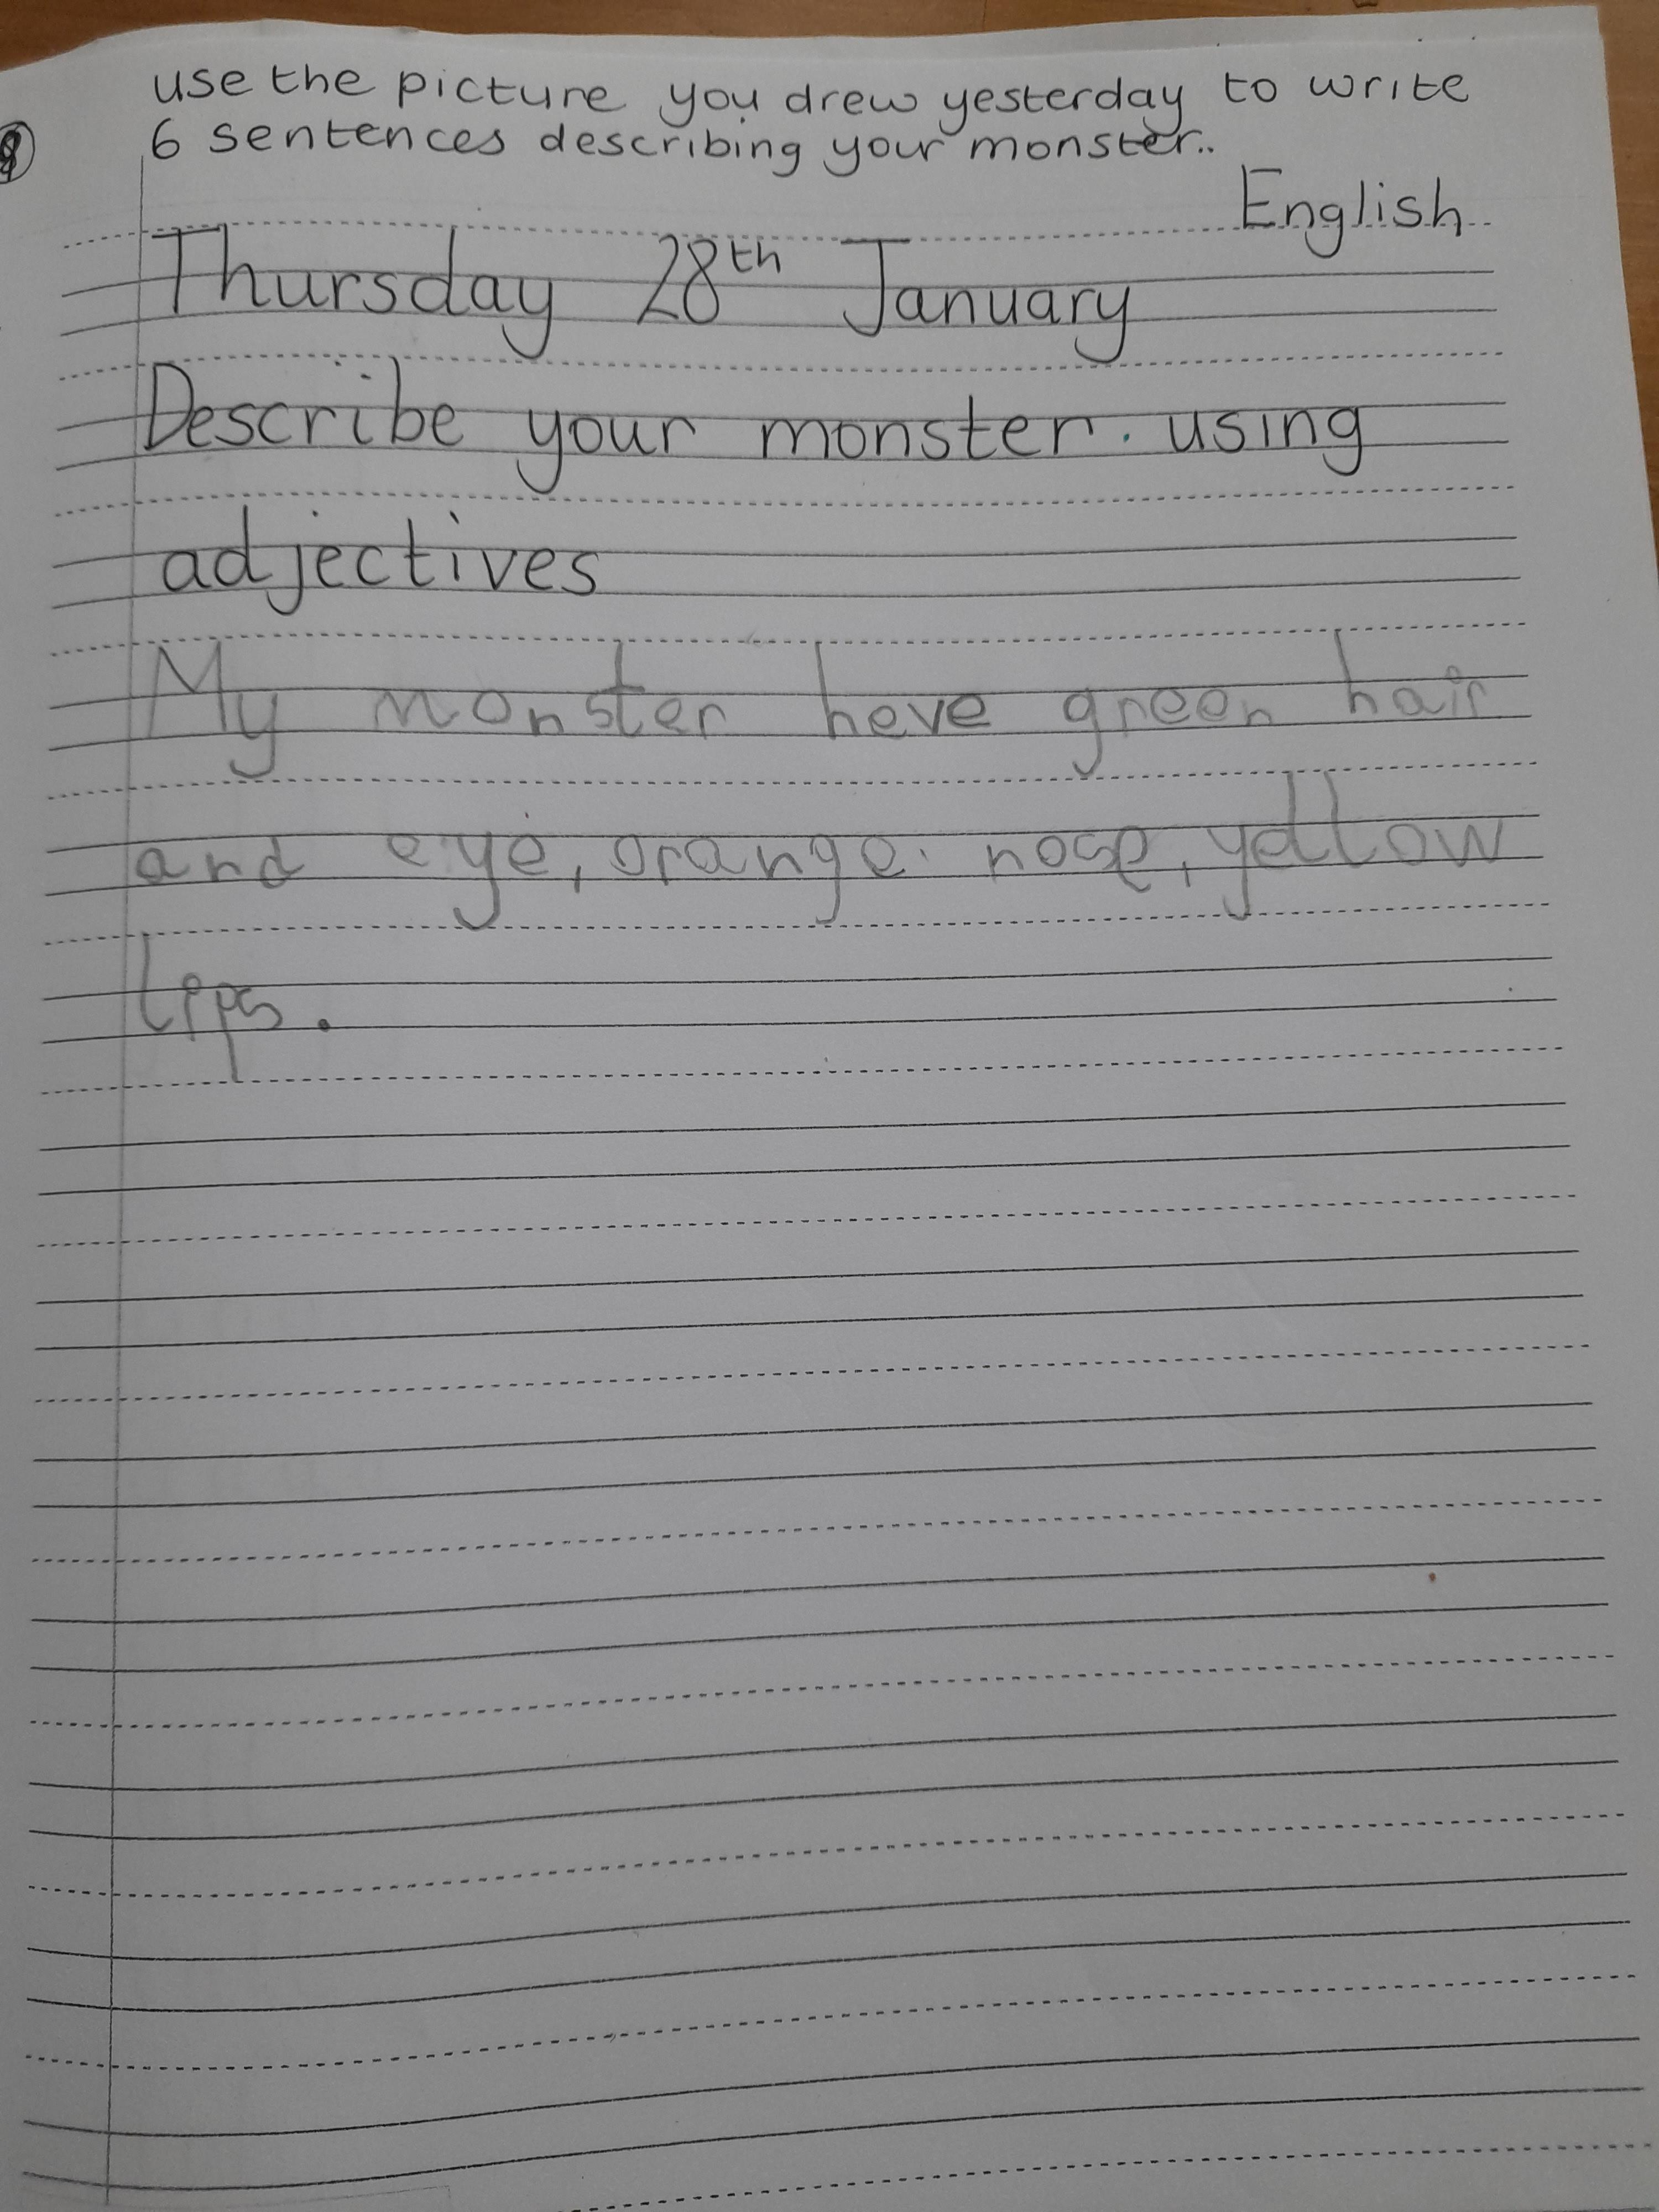 use the picture you drew yesterday to write
6 sentences describing your monster..
English
Thursday 28th January
Describe your monster. using
adjectives
My monster heve green hair
and eye, orange nose, yellow
lips.